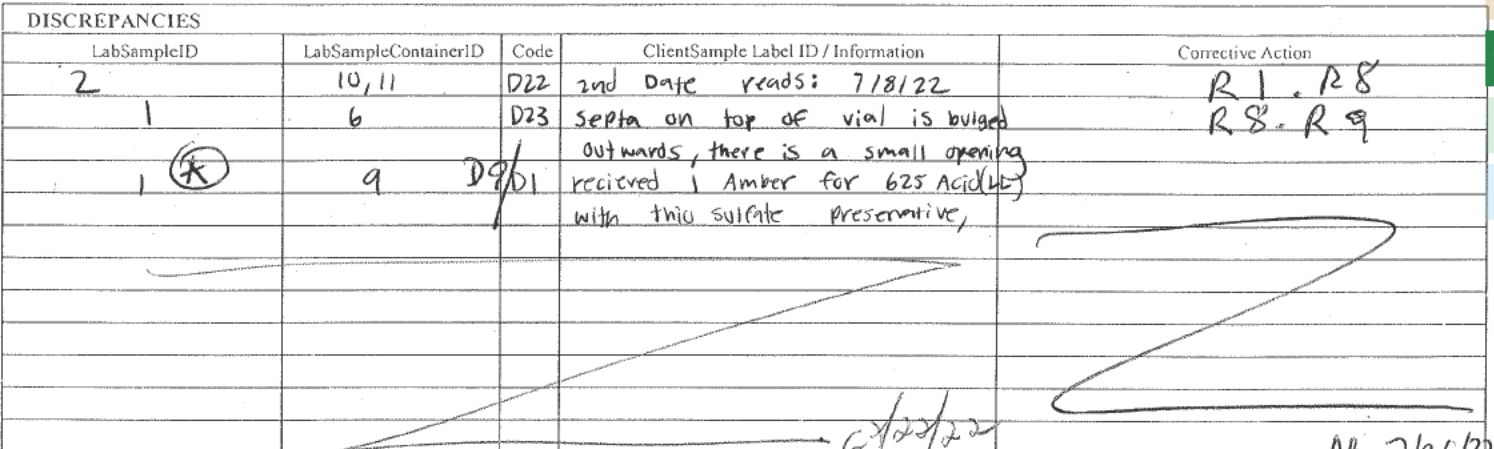 DISCREPANCIES
LabSampleID LabSampleContainerID Code ClientSample Label ID / Information Corrective Action
2 10, 11 D22 2nd Date reads: 7/8/22 R1. R8
1 6 D23 septa on top of vial is bulged R8. R9
outwards, there is a small opening
1 * 9 D9/D1 recieved 1 Amber for 625 Acid(LL)
with thio sulfate preservative,
/22/22